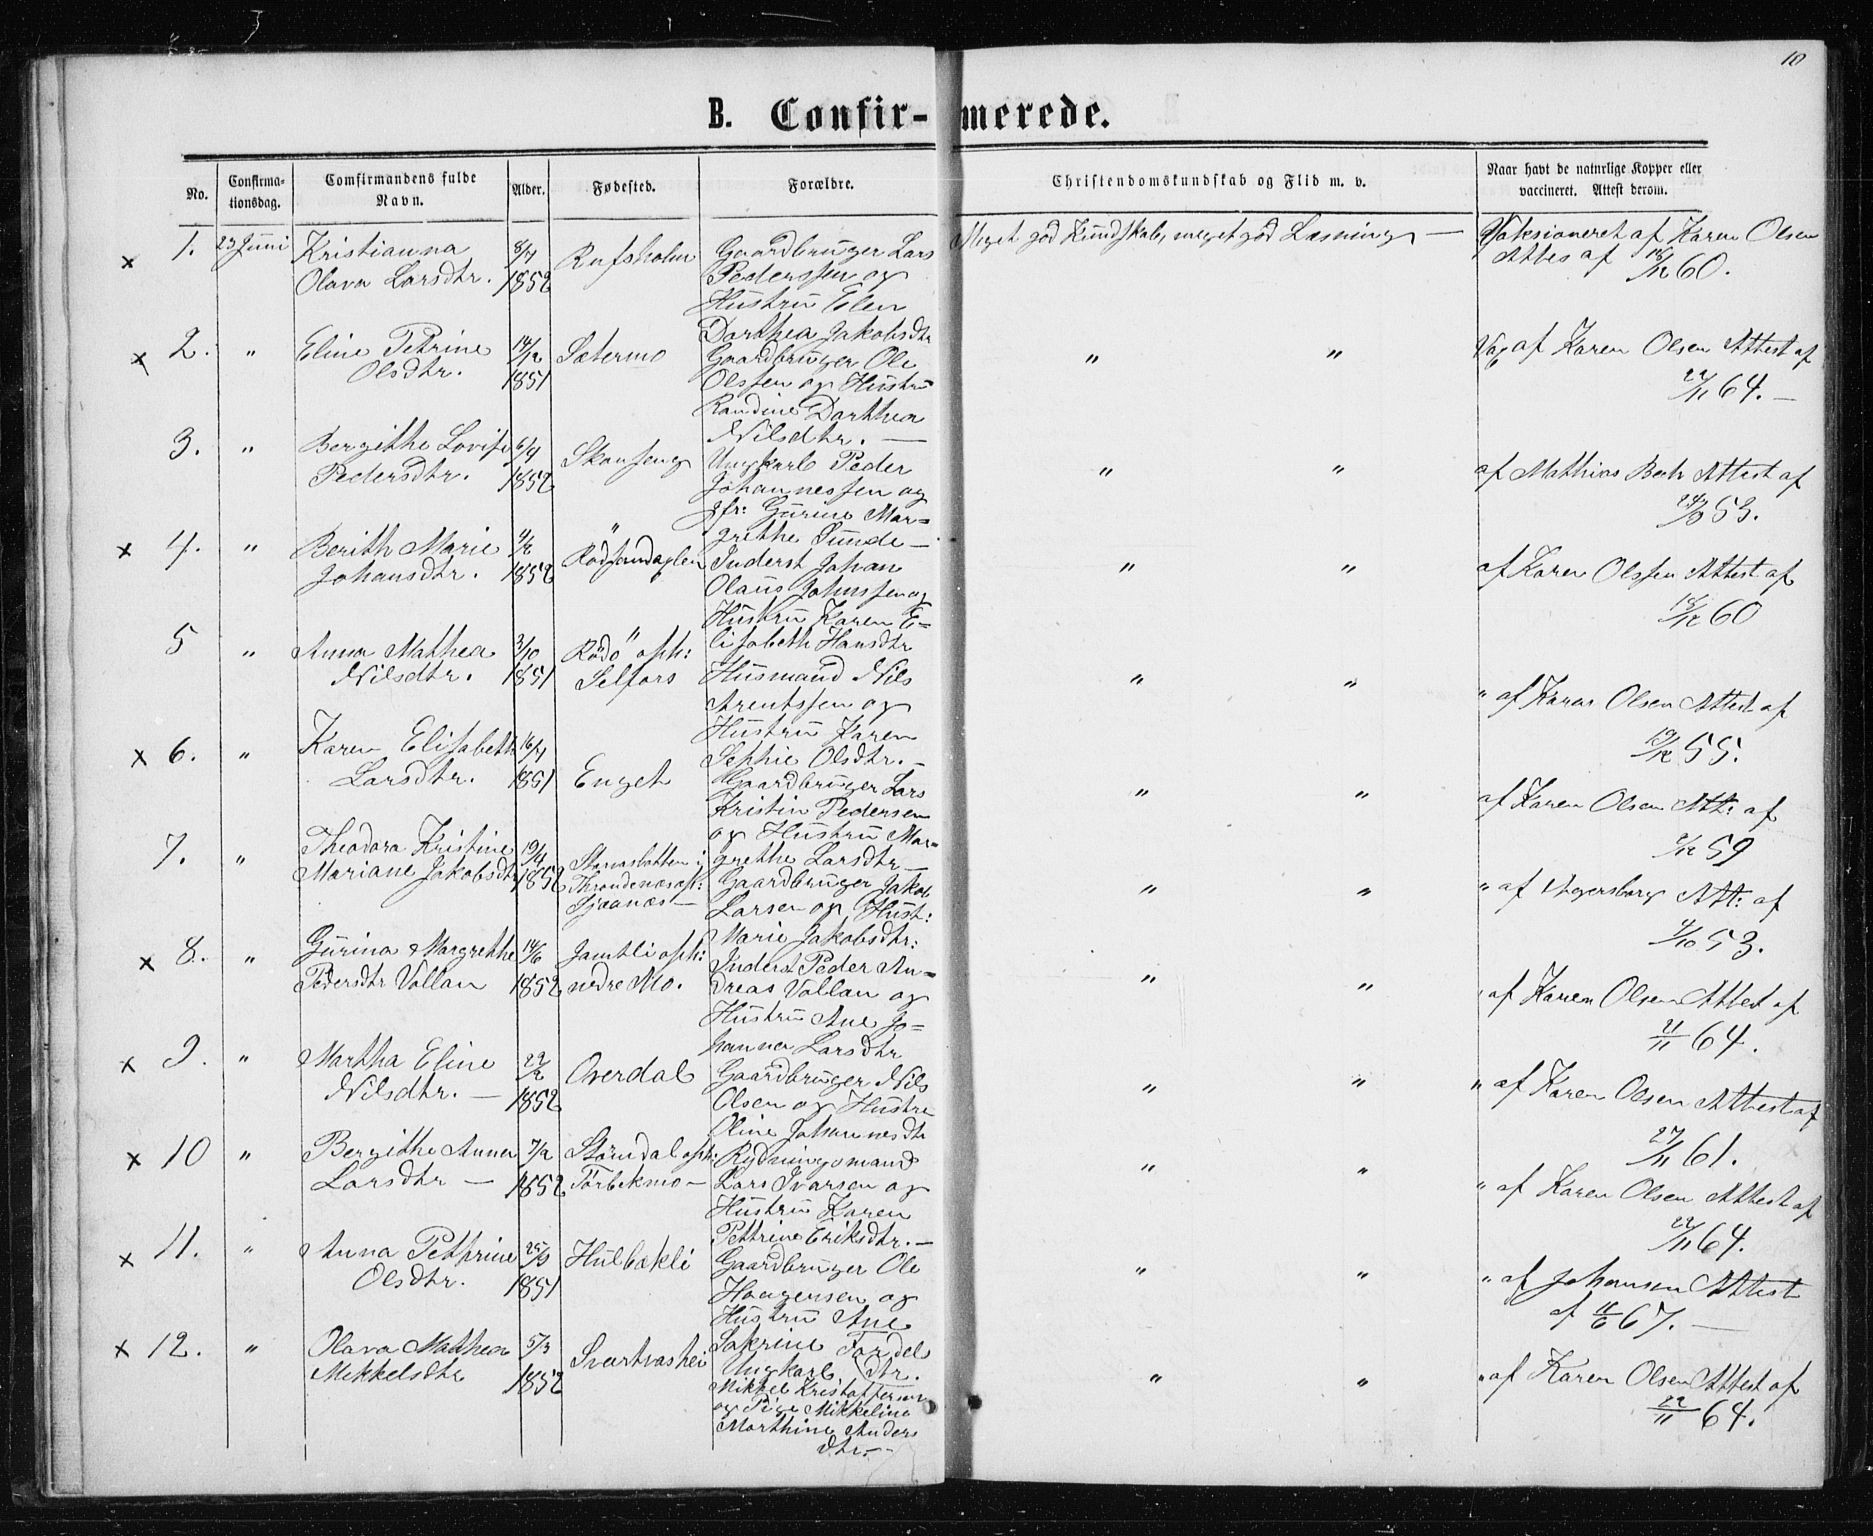 10
B. Confir-merede.
No.
Confirma-
tionsdag.
Comfirmandens fulde
Navn.
Alder.
Fødested.
Forældre.
Christendomskundskab og Flid m. v.
Naar havt de naturlige Kopper eller
vaccineret. Attest derom.
x 1. 23 Juni
Kristianna
Olava Larsdtr.
8/7
1852
Rufsholm
Gaardbruger Lars
Pederssen og
Hustru Elen
Dorthea Jakobsdtr
Meget god Kundskab, meget god Læsning —
Vaksioneret af Karen Olsen
Attes af 18/12 60.
x 2. "
Eline Petrine
Olsdtr.
14/12
1851
Sætermo
Gaardbruger Ole
Olssen og Hustru
Randine Dorthea
Nilsdtr. —
" "
Vac af Karen Olsen Attest af
22/11 64. —
3. "
Bergithe Lovise
Pedersdtr.
6/4
1852
Skonseng
Ungkarl Peder
Johannessen og
Jfr: Gurine Mar=
grethe Sunde —
" "
af Mathias Bech Attest af
53.
x 4. "
Berith Marie
Johansdtr.
4/2
1852
Inderst Johan
Olaus Johnssen og
Hustru Karen E=
lisabeth Hansdtr
" "
af Karen Olssen Attest af
18/12 60
5 "
Anna Mathea
Nilsdtr.
3/10
1851
Rödö oph:
Selfors
Husmand Nils
Arentssen og
Hustru Karen
Sophie Olsdtr. —
" "
" af Karen Olsen Attest af
19/12 55.
x 6. "
Karen Elisabeth
Larsdtr.
16/7
1851
Enget
Gaardbruger Lars
Kristin Pedersen
og Hustru Mar=
grethe Larsdtr —
" "
af Karen Olsen Att: af
59
7. "
Theodora Kristine
Mariane Jakobsdtr
19/4
1852
Throndenæs oph:
Gaardbruger Jakob
Larsen og Hust:
Marie Jakobsdtr:
" "
" af Att: af
4/10 53.
x 8. "
Gurina Margrethe
Pedersdtr Vollan
14/6
1852
Jamtli oph:
nedre Mo.
Inderst Peder An=
dreas Vollan og
Hustru Ane Jo=
hanna Larsdtr
" "
" af Karen Olsen Attest af
21/11 64.
x 9. "
Martha Eline
Nilsdtr. —
29/2
1852
Overdal
Gaardbruger Nils
Olsen og Hustru
Oline Johannesdtr
" "
" af Karen Olsen Attest af
27/11 61.
x 10 "
Bergithe Anna
Larsdtr —
7/2
1852
Störmdal oph:
Törbekmo —
Rydningsmand
Lars Ivarsen og
Hustru Karen
Pettrine Eriksdtr. —
" "
" af Karen Olsen Attest af
22/11 64.
x 11. "
Anna Petthrine
Olsdtr.
25/9
1851
Hulbækli
Gaardbruger Ole
Haagensen og
Hustru Ane
Safrine Tordels
dtr.
" "
" af Johansen Attest
af 11/6 67. —
x 12. "
Olava Mathea
Mikkelsdtr
5/3
1852
Svartvashei
Ungkarl
Mikkel Kristoffersen
og Pige Mikkeline
Marthine Anders
dtr. —
" "
" af Karen Olsen Attest af
22/11 64.